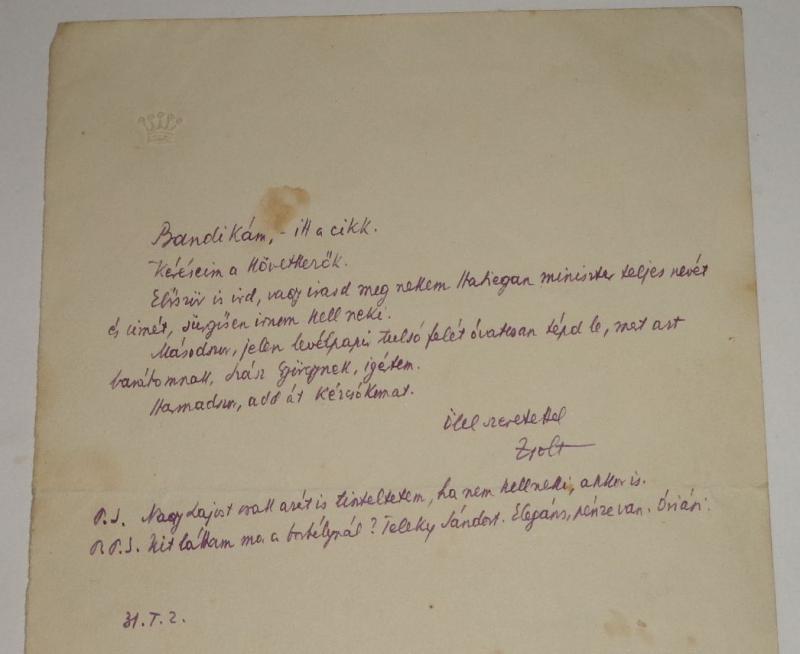 Bandikám, - itt a cikk.
Kéréseim a következők.
Először is ird, vagy irasd meg nekem Hatiegan miniszter teljes nevét
és cimét, sürgősen irnom kell neki.
Másodszor, jelen levélpapir tulsó felét óvatosan tépd le, mert azt
barátomnak, Györgynek, igértem.
Harmadszor, add át kézcsókomat.
Ölel szeretettel
Zsolt
P.S. Nagy Lajost csak azért is tiszteltetem, ha nem kell neki, akkor is.
P.P.S. Kit láttam ma a borbélynál? Teleky Sándort. Elegáns, pénze van. Óriási.
31. I. 2.